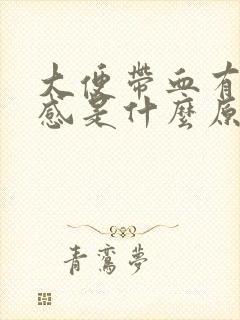 大便帶血有
感是什麼原
青鸞夢